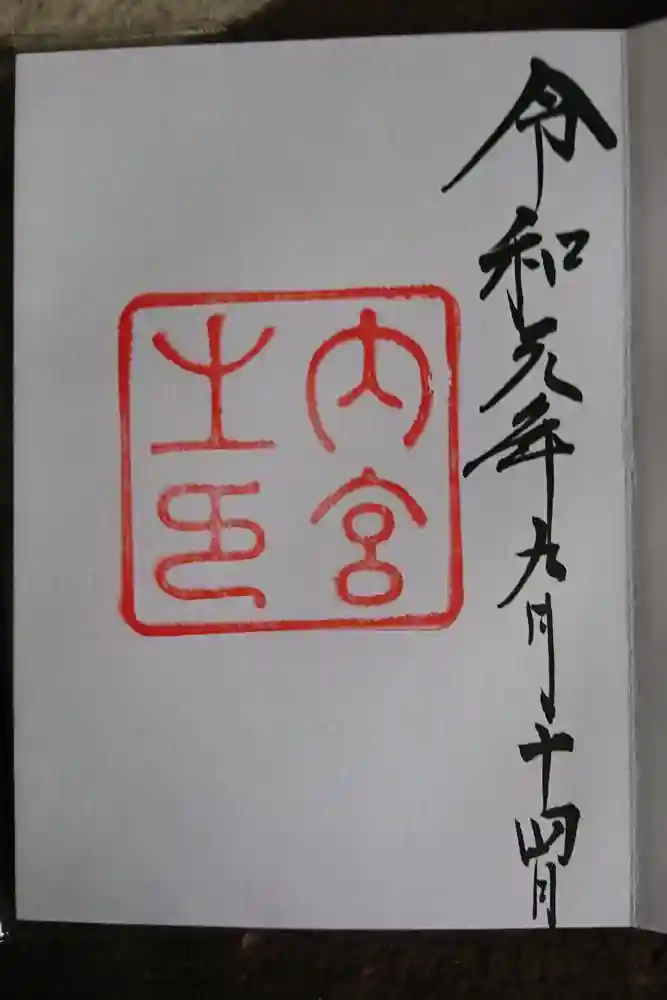 令和元年九月十四日
内宮
之印